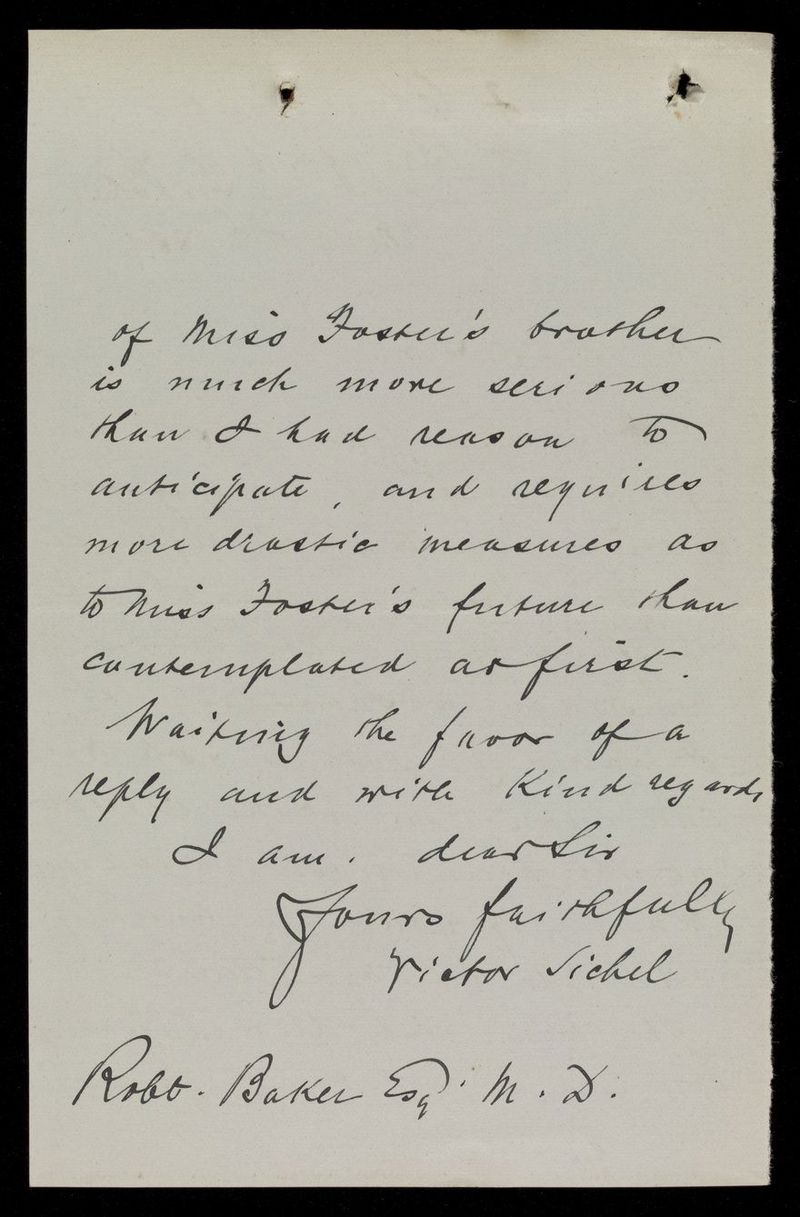 of Miss Foster's brother
is much more serious
than I had reason to
anticipate, and requires
more drastic measures as
to Miss Foster's future than
contemplated at first.
Waiting the favor of a
reply and with Kind regards
I am. dear Sir
Yours faithfully
Victor Sichel
Robt. Baker Esq. M. D.